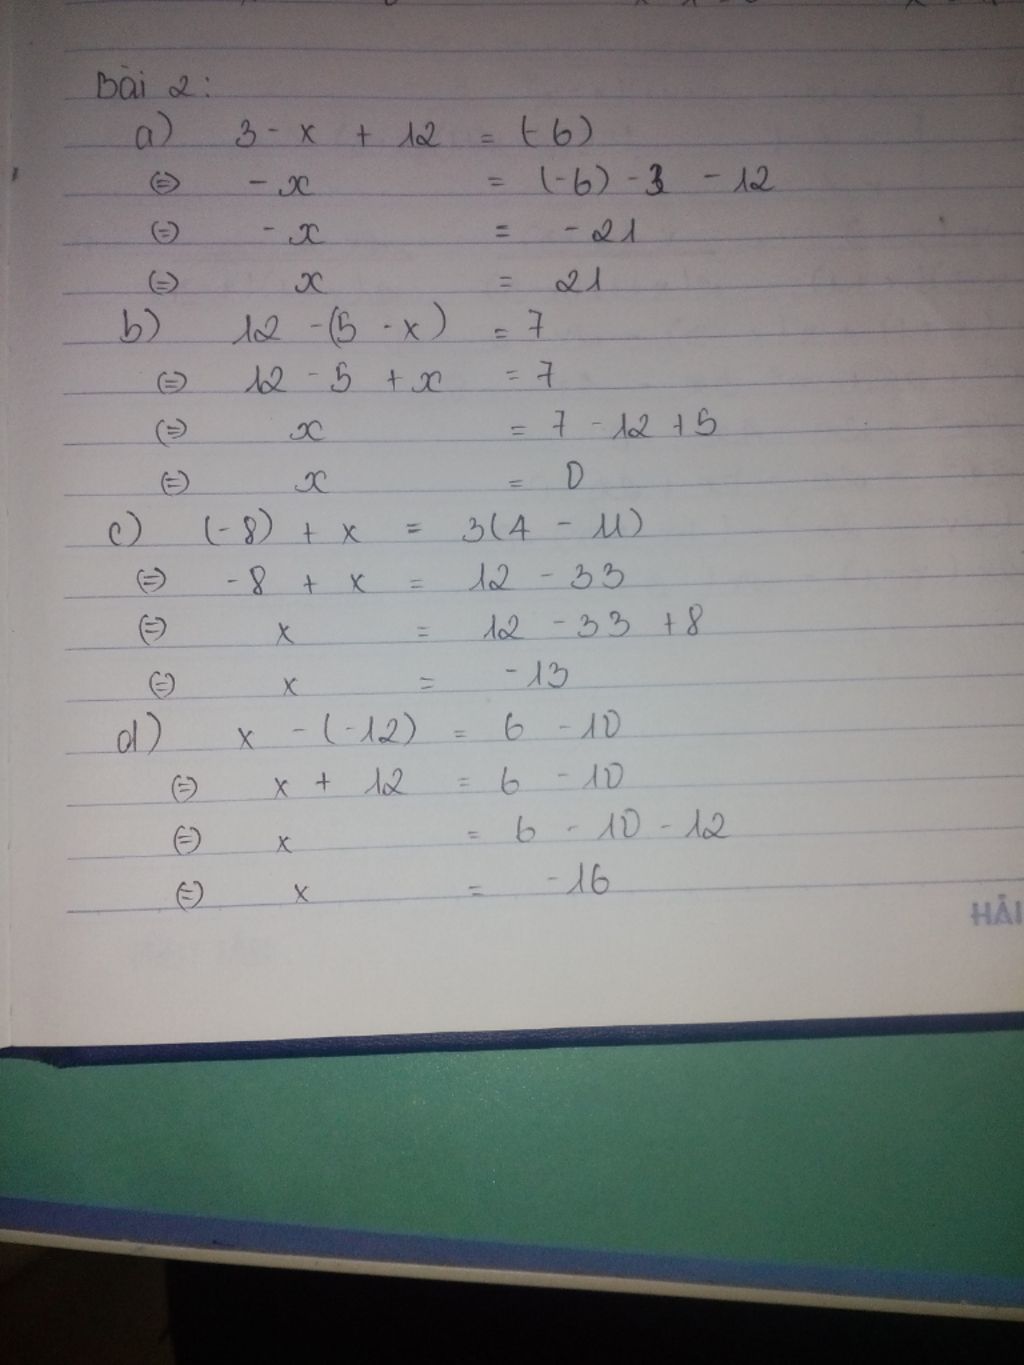 Bài 2:
a) 3 - x + 12 = (-6)
(=) - x = (-6) - 3 - 12
(=) - x = - 21
(=) x = 21
b) 12 - (5 - x) = 7
(=) 12 - 5 + x = 7
(=) x = 7 - 12 + 5
(=) x = 0
c) (-8) + x = 3(4 - 11)
(=) -8 + x = 12 - 33
(=) x = 12 - 33 + 8
(=) x = -13
d) x - (-12) = 6 - 10
(=) x + 12 = 6 - 10
(=) x = 6 - 10 - 12
(=) x = -16
HẢI